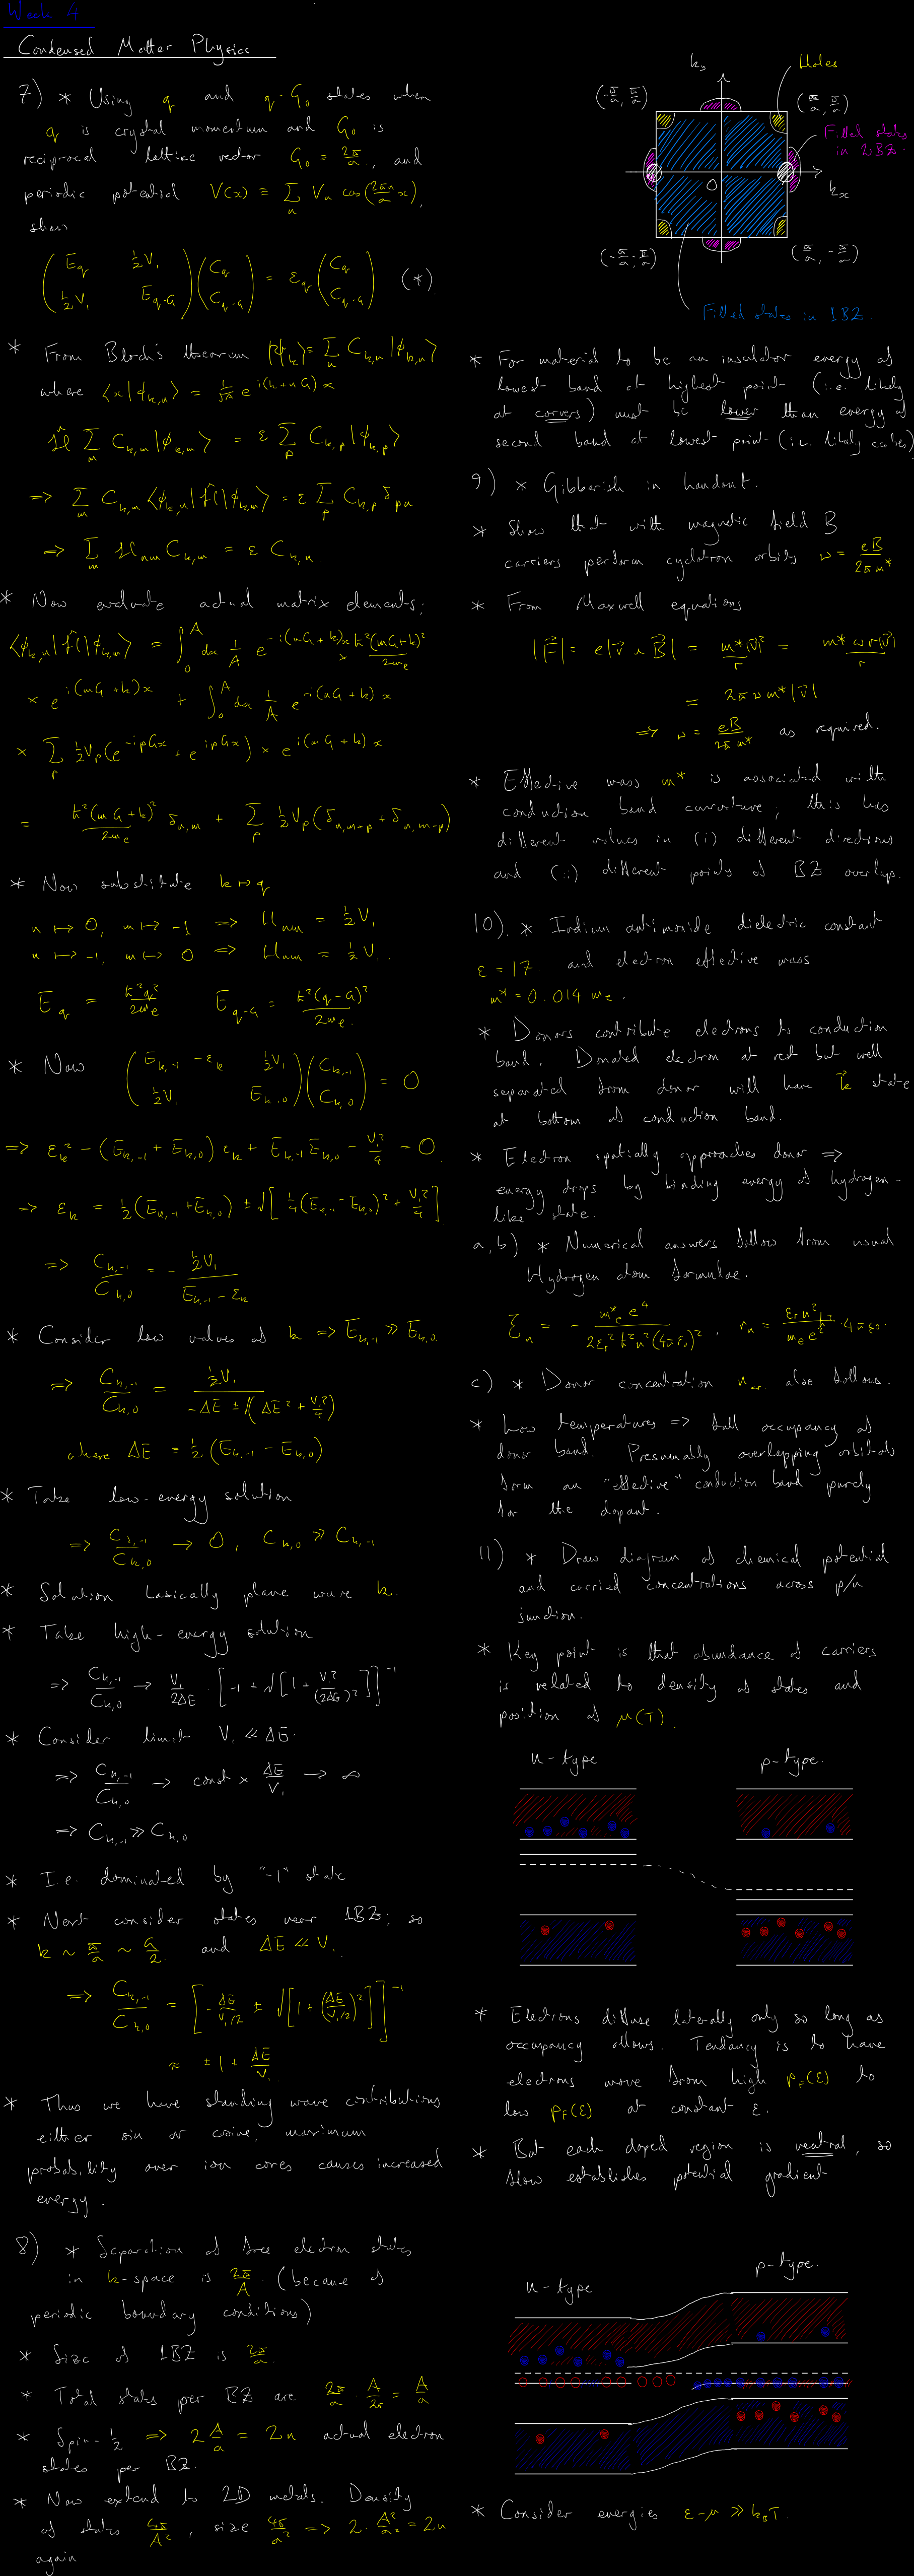 Week 4
Condensed Matter Physics
7) * Using q and q-G₀ states when
q is crystal momentum and G₀ is
reciprocal lattice vector G₀ = 2π/a, and
periodic potential V(x) = ∑_n V_n cos(2πn/a x),
show
( E_q ½V₁ ; ½V₁ E_{q-G} ) ( C_q ; C_{q-G} ) = ε_q ( C_q ; C_{q-G} ) (*).
* From Bloch's theorem |ψ_k⟩ = ∑_n C_{k,n} |φ_{k,n}⟩
where ⟨x|φ_{k,n}⟩ = 1/√A e^{i(k+nG)x}
Ĥ ∑_m C_{k,m} |φ_{k,m}⟩ = ε ∑_p C_{k,p} |φ_{k,p}⟩
⇒ ∑_m C_{k,m} ⟨φ_{k,n}|Ĥ|φ_{k,m}⟩ = ε ∑_p C_{k,p} δ_{pn}
⇒ ∑_m H_{nm} C_{k,m} = ε C_{k,n}
* Now evaluate actual matrix elements;
⟨φ_{k,n}|Ĥ|φ_{k,m}⟩ = ∫₀^A dx 1/A e^{-i(nG+k)x} × ħ²(mG+k)²/2m_e
× e^{i(mG+k)x} + ∫₀^A dx 1/A e^{-i(nG+k)x}
× ∑_p ½V_p (e^{-ipGx} + e^{ipGx}) × e^{i(mG+k)x}
= ħ²(mG+k)²/2m_e δ_{n,m} + ∑_p ½V_p (δ_{n,m+p} + δ_{n,m-p})
* Now substitute k ↦ q
n ↦ 0, m ↦ -1 ⇒ H_{nm} = ½V₁
n ↦ -1, m ↦ 0 ⇒ H_{nm} = ½V₁.
E_q = ħ²q²/2m_e E_{q-G} = ħ²(q-G)²/2m_e.
* Now ( E_{k,-1} - ε_k ½V₁ ; ½V₁ E_{k,0} ) ( C_{k,-1} ; C_{k,0} ) = 0
⇒ ε_k² - (E_{k,-1} + E_{k,0}) ε_k + E_{k,-1} E_{k,0} - V₁²/4 = 0
⇒ ε_k = ½(E_{k,-1} + E_{k,0}) ± √[¼(E_{k,-1} - E_{k,0})² + V₁²/4]
⇒ C_{k,-1}/C_{k,0} = - ½V₁/(E_{k,-1} - ε_k)
* Consider low values of k ⇒ E_{k,-1} ≫ E_{k,0}
⇒ C_{k,-1}/C_{k,0} = ½V₁/(-ΔE ± √(ΔE² + V₁²/4))
where ΔE = ½(E_{k,-1} - E_{k,0})
* Take low-energy solution
⇒ C_{k,-1}/C_{k,0} → 0, C_{k,0} ≫ C_{k,-1}
* Solution basically plane wave k.
* Take high-energy solution
⇒ C_{k,-1}/C_{k,0} → V₁/2ΔE · [-1 + √[1 + V₁²/(2ΔE)²]]^{-1}
* Consider limit V₁ ≪ ΔE
⇒ C_{k,-1}/C_{k,0} → const × ΔE/V₁ → ∞
⇒ C_{k,-1} ≫ C_{k,0}
* I.e. dominated by "-1" state
* Next consider states near 1BZ; so
k ~ π/a ~ G/2 and ΔE ≪ V₁.
⇒ C_{k,-1}/C_{k,0} = [-ΔE/(V₁/2) ± √[1 + (ΔE/(V₁/2))²]]^{-1}
≈ ±1 + ΔE/V₁
* Thus we have standing wave contributions
either sin or cosine, maximum
probability over ion cores causes increased
energy.
8) * Separation of free electron states
in k-space is 2π/A. (because of
periodic boundary conditions)
* Size of 1BZ is 2π/a.
* Total states per BZ are 2π/a · A/2π = A/a
* Spin-½ ⇒ 2 A/a = 2n actual electron
states per BZ.
* Now extend to 2D metals. Density
of states 4π/A², size 4π/a² ⇒ 2·A²/a² = 2n
again
k_y
Holes
(-π/a, π/a)
(π/a, π/a)
Filled states
in 2BZ.
O
k_x
(-π/a, -π/a)
(π/a, -π/a)
Filled states in 1BZ.
* For material to be an insulator energy of
lowest band at highest point (i.e. likely
at corners) must be lower than energy of
second band at lowest point (i.e. likely
9) * Gibberish in handout.
* Show that with magnetic field B
carriers perform cyclotron orbits ν = eB/2πm*
* From Maxwell equations
|F⃗| = e|v⃗ ∧ B⃗| = m*|v⃗|²/r = m*ωr|v⃗|/r
= 2πνm*|v⃗|
⇒ ν = eB/2πm* as required.
* Effective mass m* is associated with
conduction band curvature, this has
different values in (i) different directions
and (ii) different points of BZ overlap.
10). * Indium antimonide dielectric constant
ε = 17. and electron effective mass
m* = 0.014 m_e.
* Donors contribute electrons to conduction
band. Donated electron at rest but well
separated from donor will have k⃗ state
at bottom of conduction band.
* Electron spatially approaches donor ⇒
energy drops by binding energy of hydrogen-
like state.
a,b) * Numerical answers follow from usual
Hydrogen atom formulae.
E_n = - m*_e e⁴/(2ε_r² ħ² n² (4πε₀)²), r_n = ε_r n² ħ²/(m_e e²) · 4πε₀.
c) * Donor concentration n_cr. also follows.
* Low temperatures ⇒ full occupancy of
donor band. Presumably overlapping orbitals
form an "effective" conduction band purely
for the dopant.
11) * Draw diagram of chemical potential
and carried concentrations across p/n
junction.
* Key point is that abundance of carriers
is related to density of states and
position of μ(T).
n-type
p-type.
* Electrons diffuse laterally only so long as
occupancy allows. Tendancy is to have
electrons move from high p_F(ε) to
low p_F(ε) at constant ε.
* But each doped region is neutral, so
flow establishes potential gradient
n-type
p-type.
* Consider energies ε-μ ≫ k_BT.